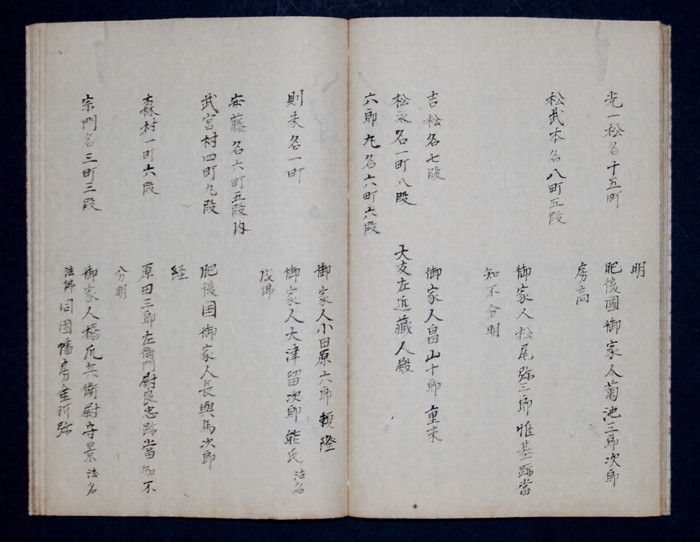 明
光一松名十五町 肥後國御家人菊池三郎次郎
房高
松武本名八町五段
御家人松尾弥三郎惟基跡當
知不分明
吉松名七段 御家人畠山十郎重末
松永名一町八段 大友左近蔵人殿
六郎丸名六町六段
御家人小田原六郎頼隆
則末名一町 御家人大津留次郎能氏法名
成佛
安藤名六町五段内
武宮村四町九段 肥後国御家人長與馬次郎
経
森村一町六段 原田三郎左衛門尉良忠跡當知不
分明
宗門名三町三段 御家人橋爪兵衛尉守景法名
法佛同因幡房重阿弥